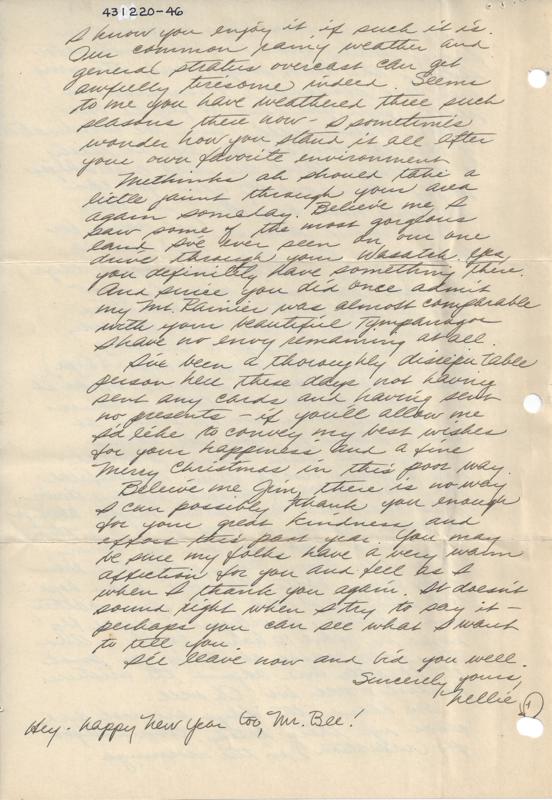 431220-46
I know you enjoy it, if such it is.
Our common rainy weather and
general stratus overcast can get
awfully tiresome indeed. Seems
to me you have weathered three such
seasons there now - I sometimes
wonder how you stand it all after
your own favorite environment.
Methinks ah should take a
little jaunt through your area
again someday. Believe me, I
saw some of the most gorgeous
land I've ever seen on our one
drive through your Wasatch. Yes,
you definitely have something there.
And since you did once admit
my Mt. Rainier was almost comparable
with your beautiful Tympanagos
I have no envy remaining at all.
I've been a thoroughly disreputable
person here these days not having
sent any cards and having sent
no presents - if you'll allow me
I'd like to convey my best wishes
for your happiness and a fine
Merry Christmas in this poor way.
Believe me Jim, there is no way
I can possibly thank you enough
for your great kindness and
effort this past year. You may
be sure my folks have a very warm
affection for you and feel as I
when I thank you again. It doesn't
sound right when I try to say it -
perhaps you can see what I want
to tell you.
I'll leave now and bid you well.
Sincerely yours,
Nellie
Hey - happy New Year too, Mr. Bee!